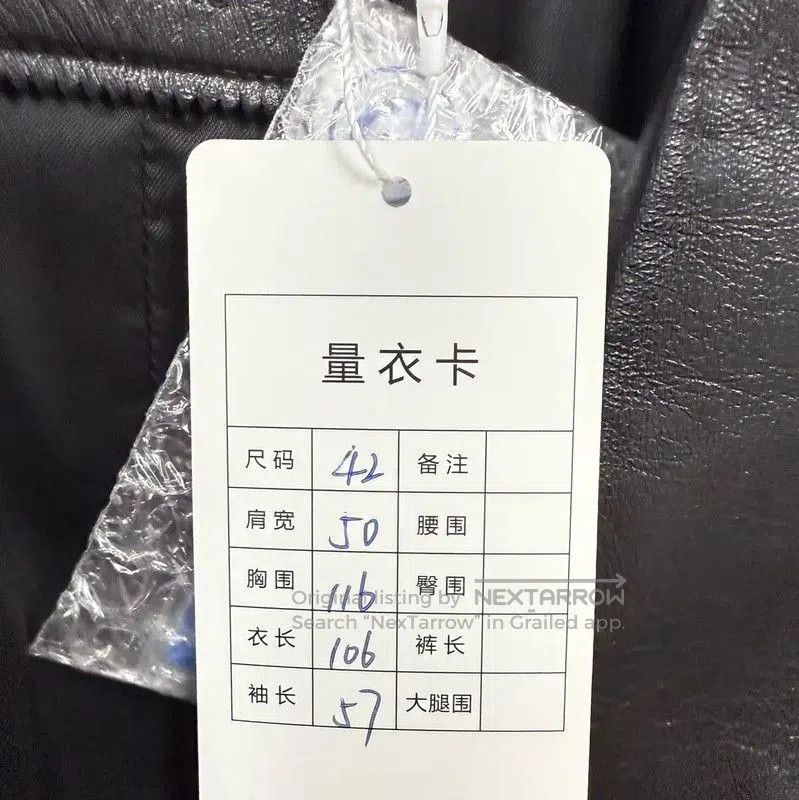 量衣卡
尺码 42 备注
肩宽 50 腰围
胸围 116 臀围
Original listing by NEXTARROW
Search "NexTarrow" in Grailed app.
衣长 106 裤长
袖长 57 大腿围